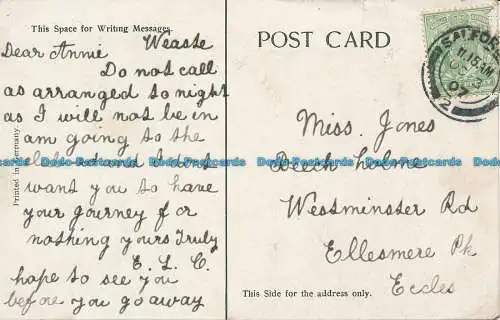 This Space for Writing Messages.
Weaste
Dear Annie
Do not call
as arranged to night
as I will not be in
am going to the
want you to have
your journey for
nothing yours Truly
E. L. C.
hope to see you
before you go away
Printed in Germany.
POST CARD
SALFORD
11.15 AM
OC
07
2
Miss. Jones
Beech Holme
Westminster Rd
Ellesmere Pk
Eccles
This Side for the address only.
Dodo-Postcards Dodo-Postcards Dodo-Postcards Dodo-Postcards